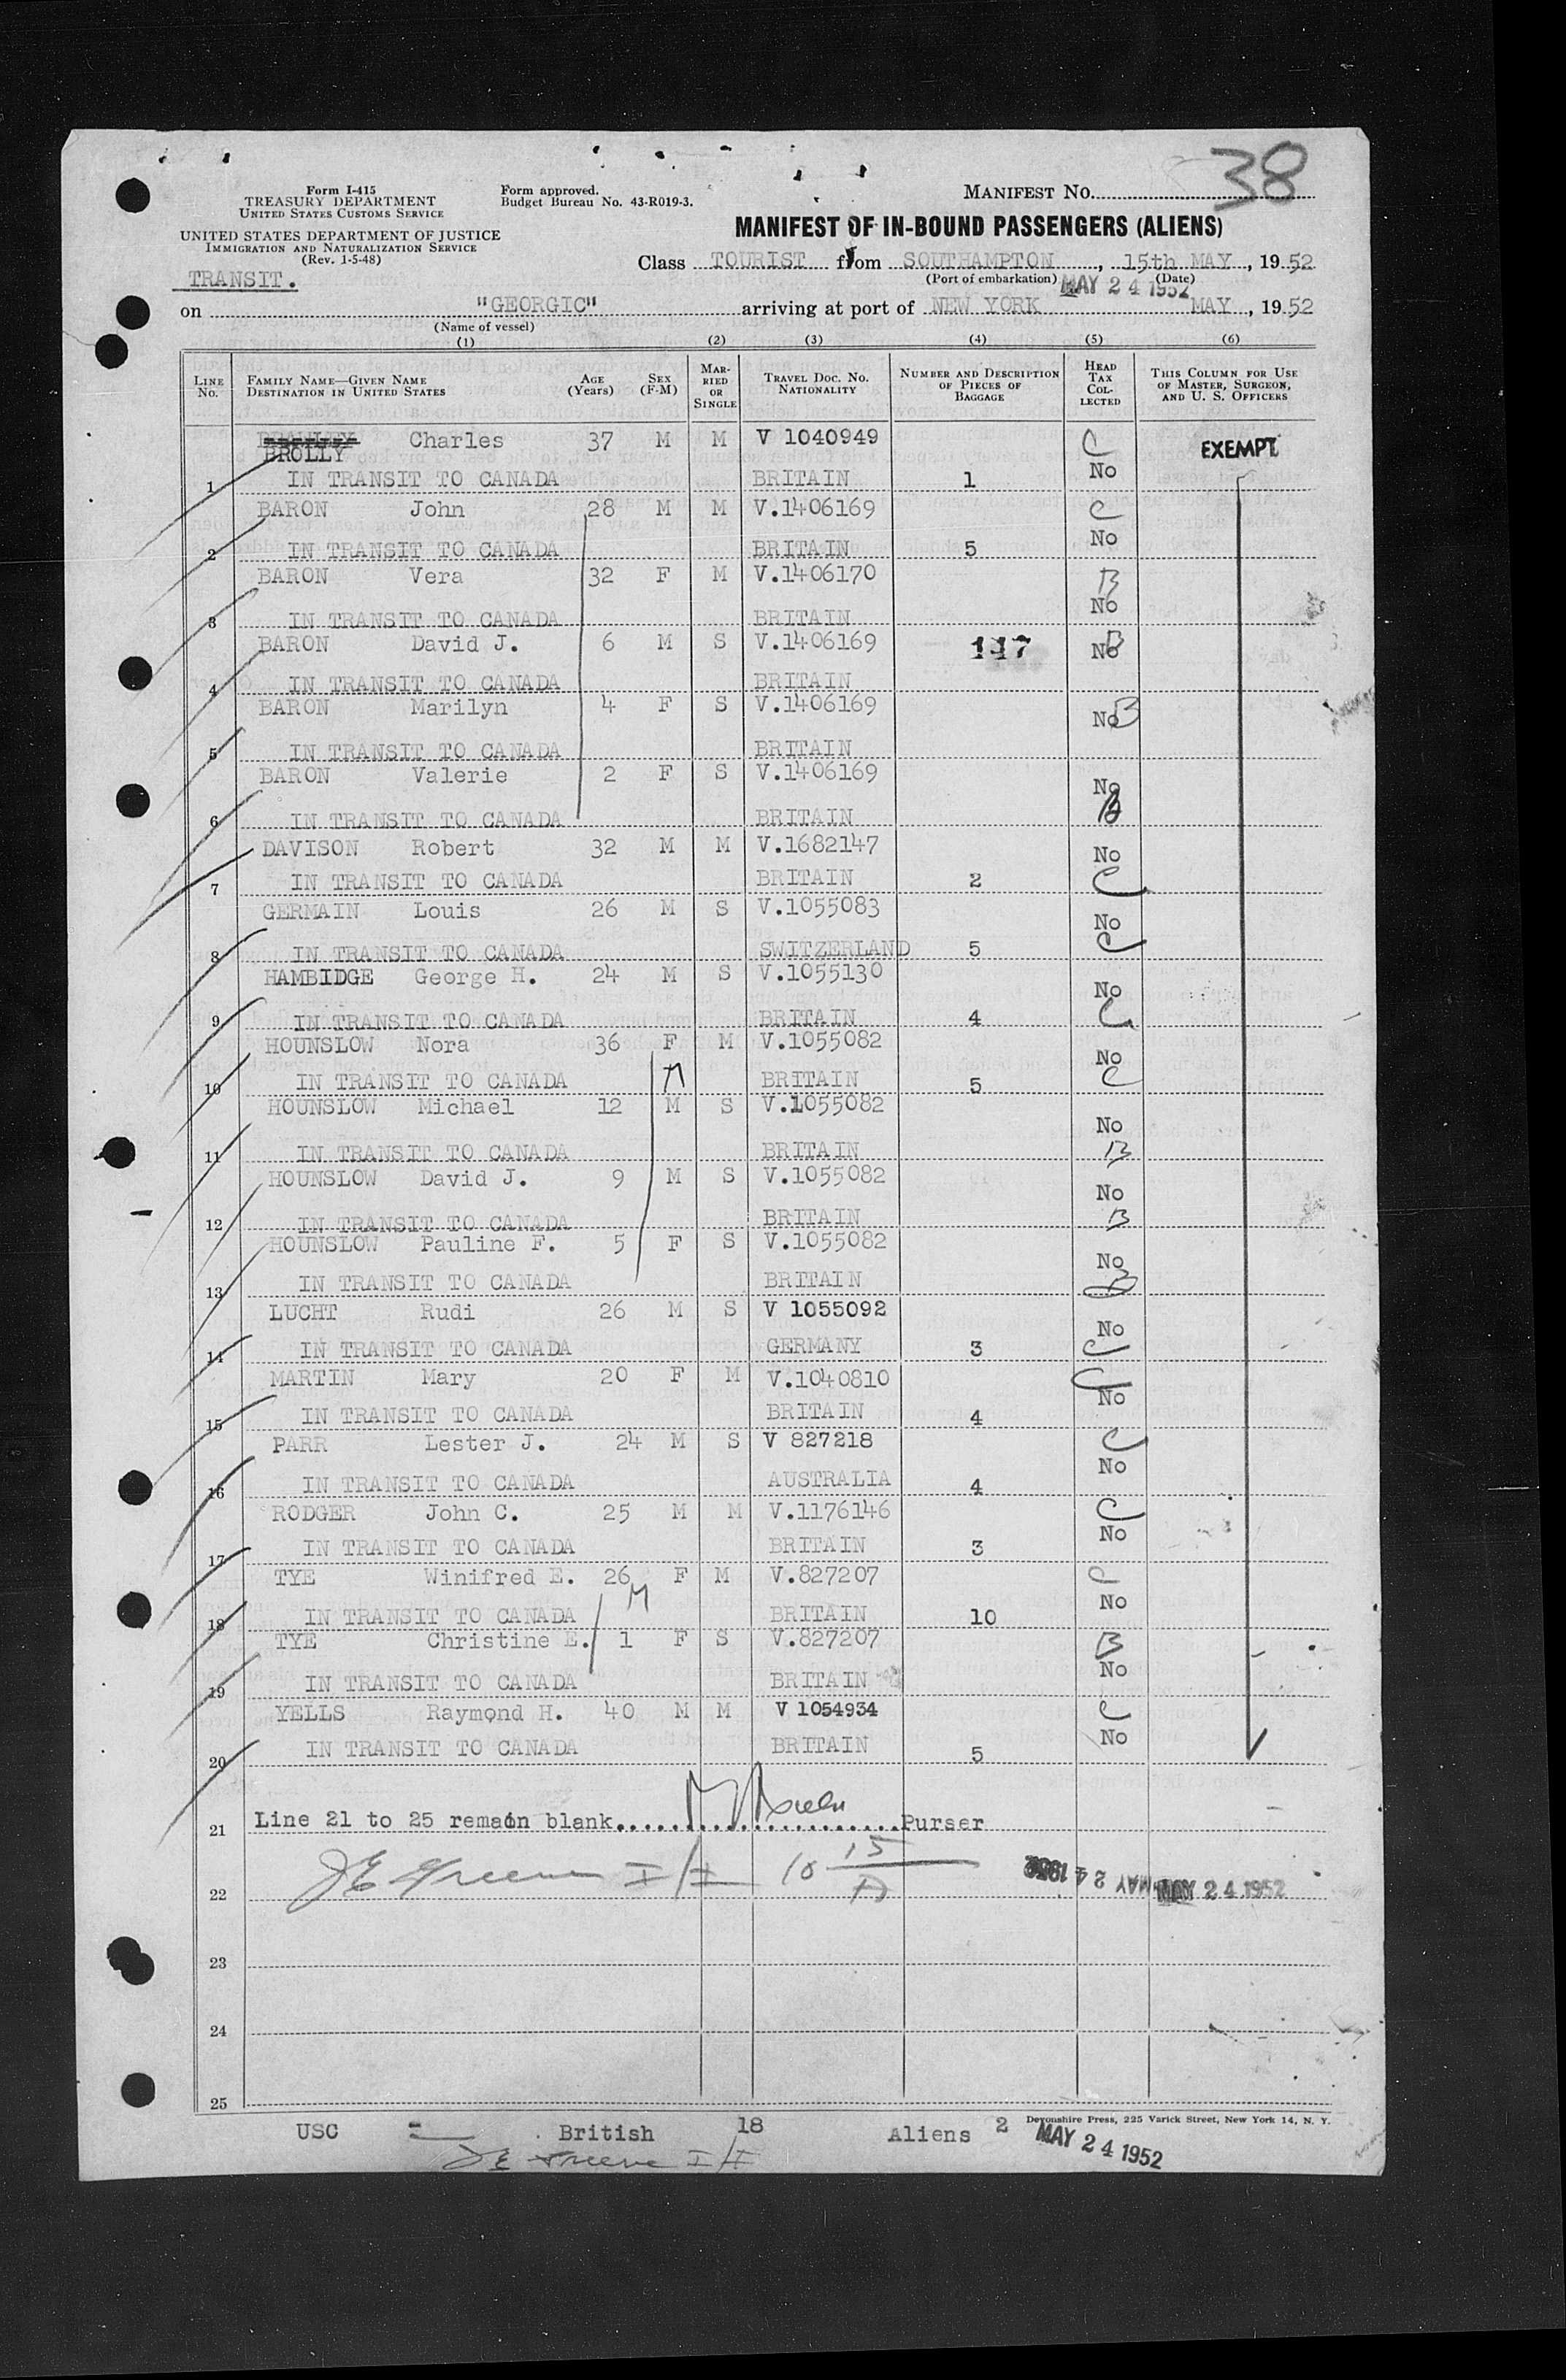 38
Form I-415
TREASURY DEPARTMENT
UNITED STATES CUSTOMS SERVICE
Form approved.
Budget Bureau No. 43-R019-3.
MANIFEST NO.
UNITED STATES DEPARTMENT OF JUSTICE
IMMIGRATION AND NATURALIZATION SERVICE
(Rev. 1-5-48)
MANIFEST OF IN-BOUND PASSENGERS (ALIENS)
TRANSIT.
Class TOURIST from SOUTHAMPTON, 15th MAY, 1952
(Port of embarkation) (Date)
MAY 24 1952
on "GEORGIC" arriving at port of NEW YORK MAY, 1952
(Name of vessel)
(1) (2) (3) (4) (5) (6)
LINE No. FAMILY NAME—GIVEN NAME DESTINATION IN UNITED STATES AGE (Years) SEX (F-M) MARRIED OR SINGLE TRAVEL DOC. NO. NATIONALITY NUMBER AND DESCRIPTION OF PIECES OF BAGGAGE HEAD TAX COLLECTED THIS COLUMN FOR USE OF MASTER, SURGEON, AND U. S. OFFICERS
BROLLY Charles 37 M M V 1040949 C EXEMPT
1 IN TRANSIT TO CANADA BRITAIN 1 No
BARON John 28 M M V.1406169 C
2 IN TRANSIT TO CANADA BRITAIN 5 No
BARON Vera 32 F M V.1406170 B
3 IN TRANSIT TO CANADA BRITAIN No
BARON David J. 6 M S V.1406169 117 No B
4 IN TRANSIT TO CANADA BRITAIN
BARON Marilyn 4 F S V.1406169 No B
5 IN TRANSIT TO CANADA BRITAIN
BARON Valerie 2 F S V.1406169 No
6 IN TRANSIT TO CANADA BRITAIN B
DAVISON Robert 32 M M V.1682147 No
7 IN TRANSIT TO CANADA BRITAIN 2 C
GERMAIN Louis 26 M S V.1055083 No
8 IN TRANSIT TO CANADA SWITZERLAND 5 C
HAMBIDGE George H. 24 M S V.1055130 No
9 IN TRANSIT TO CANADA BRITAIN 4 C
HOUNSLOW Nora 36 F M V.1055082 No
10 IN TRANSIT TO CANADA M BRITAIN 5 C
HOUNSLOW Michael 12 M S V.1055082 No
11 IN TRANSIT TO CANADA BRITAIN B
HOUNSLOW David J. 9 M S V.1055082 No
12 IN TRANSIT TO CANADA BRITAIN B
HOUNSLOW Pauline F. 5 F S V.1055082 No
13 IN TRANSIT TO CANADA BRITAIN B
LUCHT Rudi 26 M S V 1055092 No
14 IN TRANSIT TO CANADA GERMANY 3 C
MARTIN Mary 20 F M V.1040810 C No
15 IN TRANSIT TO CANADA BRITAIN 4
PARR Lester J. 24 M S V 827218 C No
16 IN TRANSIT TO CANADA AUSTRALIA 4
RODGER John C. 25 M M V.1176146 C No
17 IN TRANSIT TO CANADA BRITAIN 3
TYE Winifred E. 26 F M V.827207 C
18 IN TRANSIT TO CANADA M BRITAIN 10 No
TYE Christine E. 1 F S V.827207 B
19 IN TRANSIT TO CANADA BRITAIN No
YELLS Raymond H. 40 M M V 1054934 C
20 IN TRANSIT TO CANADA BRITAIN 5 No
21 Line 21 to 25 remain blank........................Purser
JE Greene I/I 10 15 A MAY 24 1952 MAY 24 1952
22
23
24
25
USC - British 18 Aliens 2 Devonshire Press, 225 Varick Street, New York 14, N. Y.
JE Greene I/I MAY 24 1952